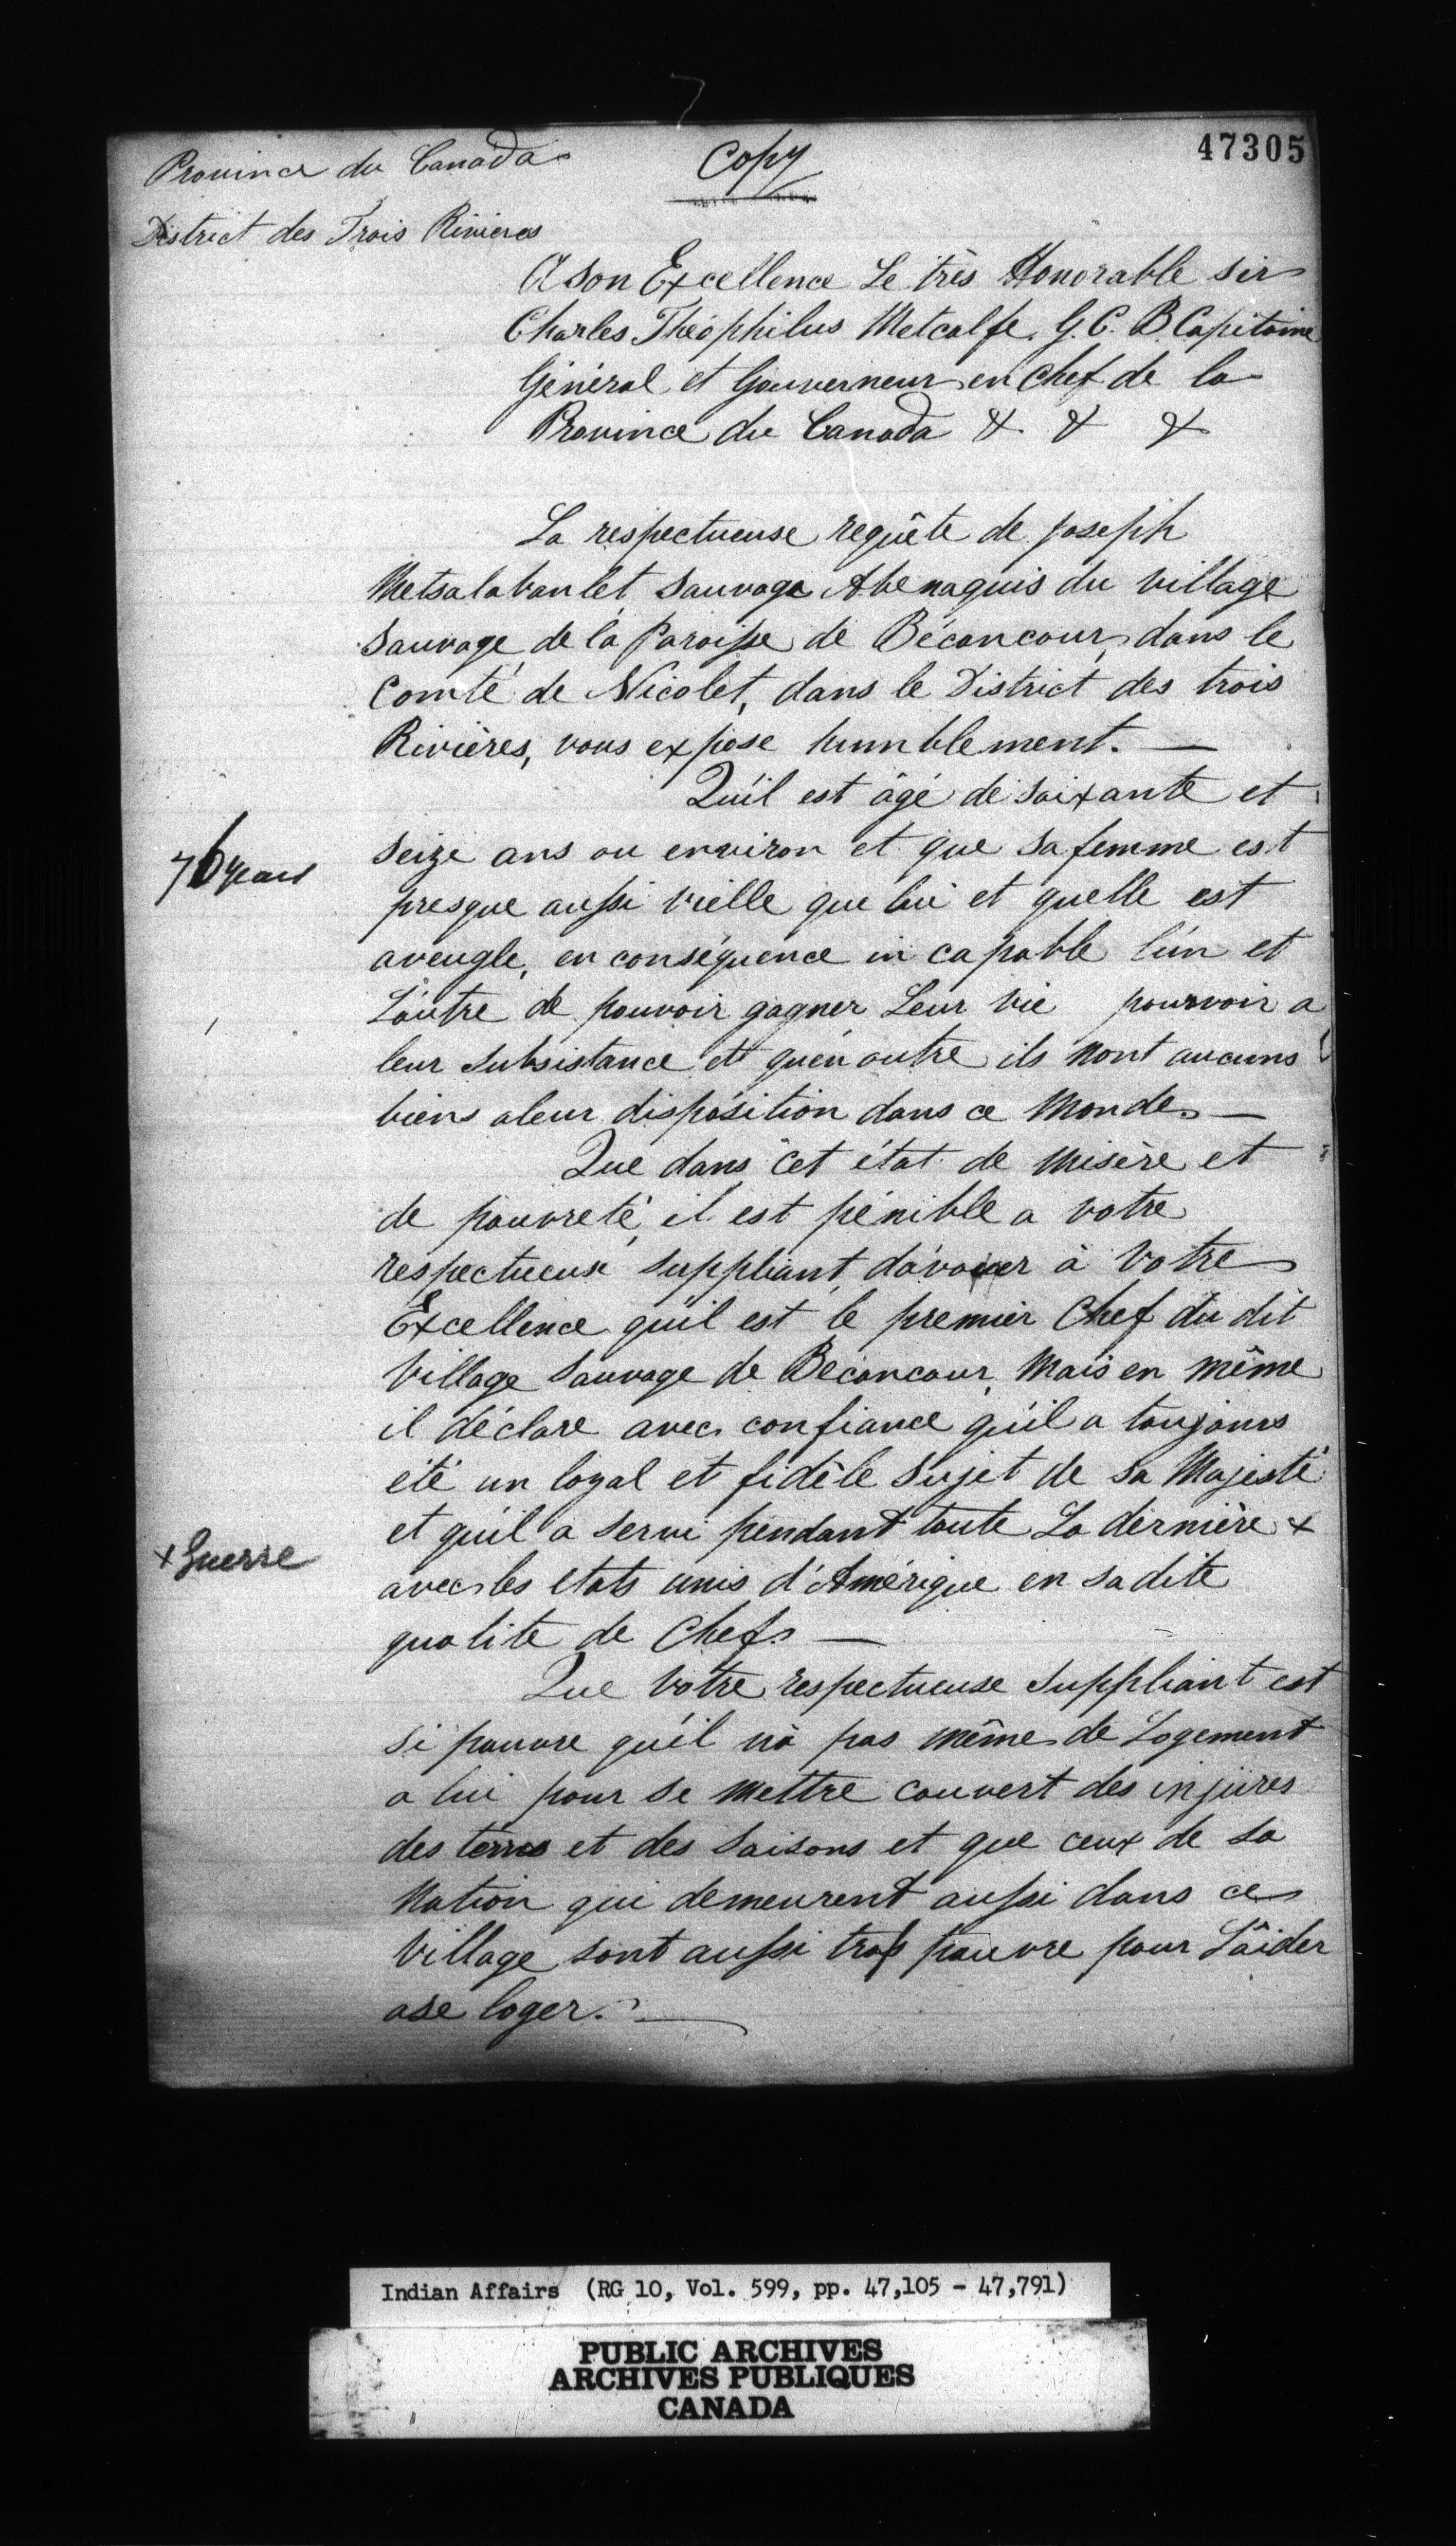 47305
Province du Canada
Copy
District des Trois Rivieres
A Son Excellence Le très Honorable sir
Charles Théophilus Metcalfe. G. C. B. Capitaine
Général et Gouverneur en Chef de la
Province du Canada & & &
La respectueuse requête de Joseph
Metsalabanlet Sauvage Abenaquis du village
Sauvage de la Paroisse de Bécancour, dans le
Comté de Nicolet, dans le District des trois
Rivières, vous expose humblement. —
Qu'il est âgé de Soixante et
76 years
Seize ans ou environ et que sa femme est
presque aussi vielle que lui et quelle est
aveugle, en conséquence in capable l'un et
L'autre de pouvoir gagner Leur vie pourvoir a
leur Subsistance et qu'en outre ils nont aucuns
biens aleur disposition dans ce Monde. —
Que dans cet état de Misère et
de pauvreté, il est pénible a votre
respectueux Suppliant, d'avouer à Votre
Excellence qu'il est le premier Chef du dit
Village Sauvage de Becancour, Mais en même
il déclare avec confiance qu'il a toujours
été un loyal et fidèle Sujet de Sa Majesté
et qu'il a Servi pendant toute La dernière x
x Guerre
avec les etats unis d'Amérique en Sadite
qualite de Chef. —
Que Votre respectueuse Suppliant est
Si pauvre qu'il n'a pas même de Logement
a lui pour Se Mettre couvert des injures
des terres et des Saisons et que ceux de Sa
Nation qui demeurent aussi dans ce
Village Sont aussi trop pauvre pour L'aider
ase loger. —
Indian Affairs (RG 10, Vol. 599, pp. 47,105 - 47,791)
PUBLIC ARCHIVES
ARCHIVES PUBLIQUES
CANADA